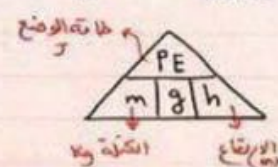 طاقة الوضع
J
PE
m g h
الكتلة kg الارتفاع